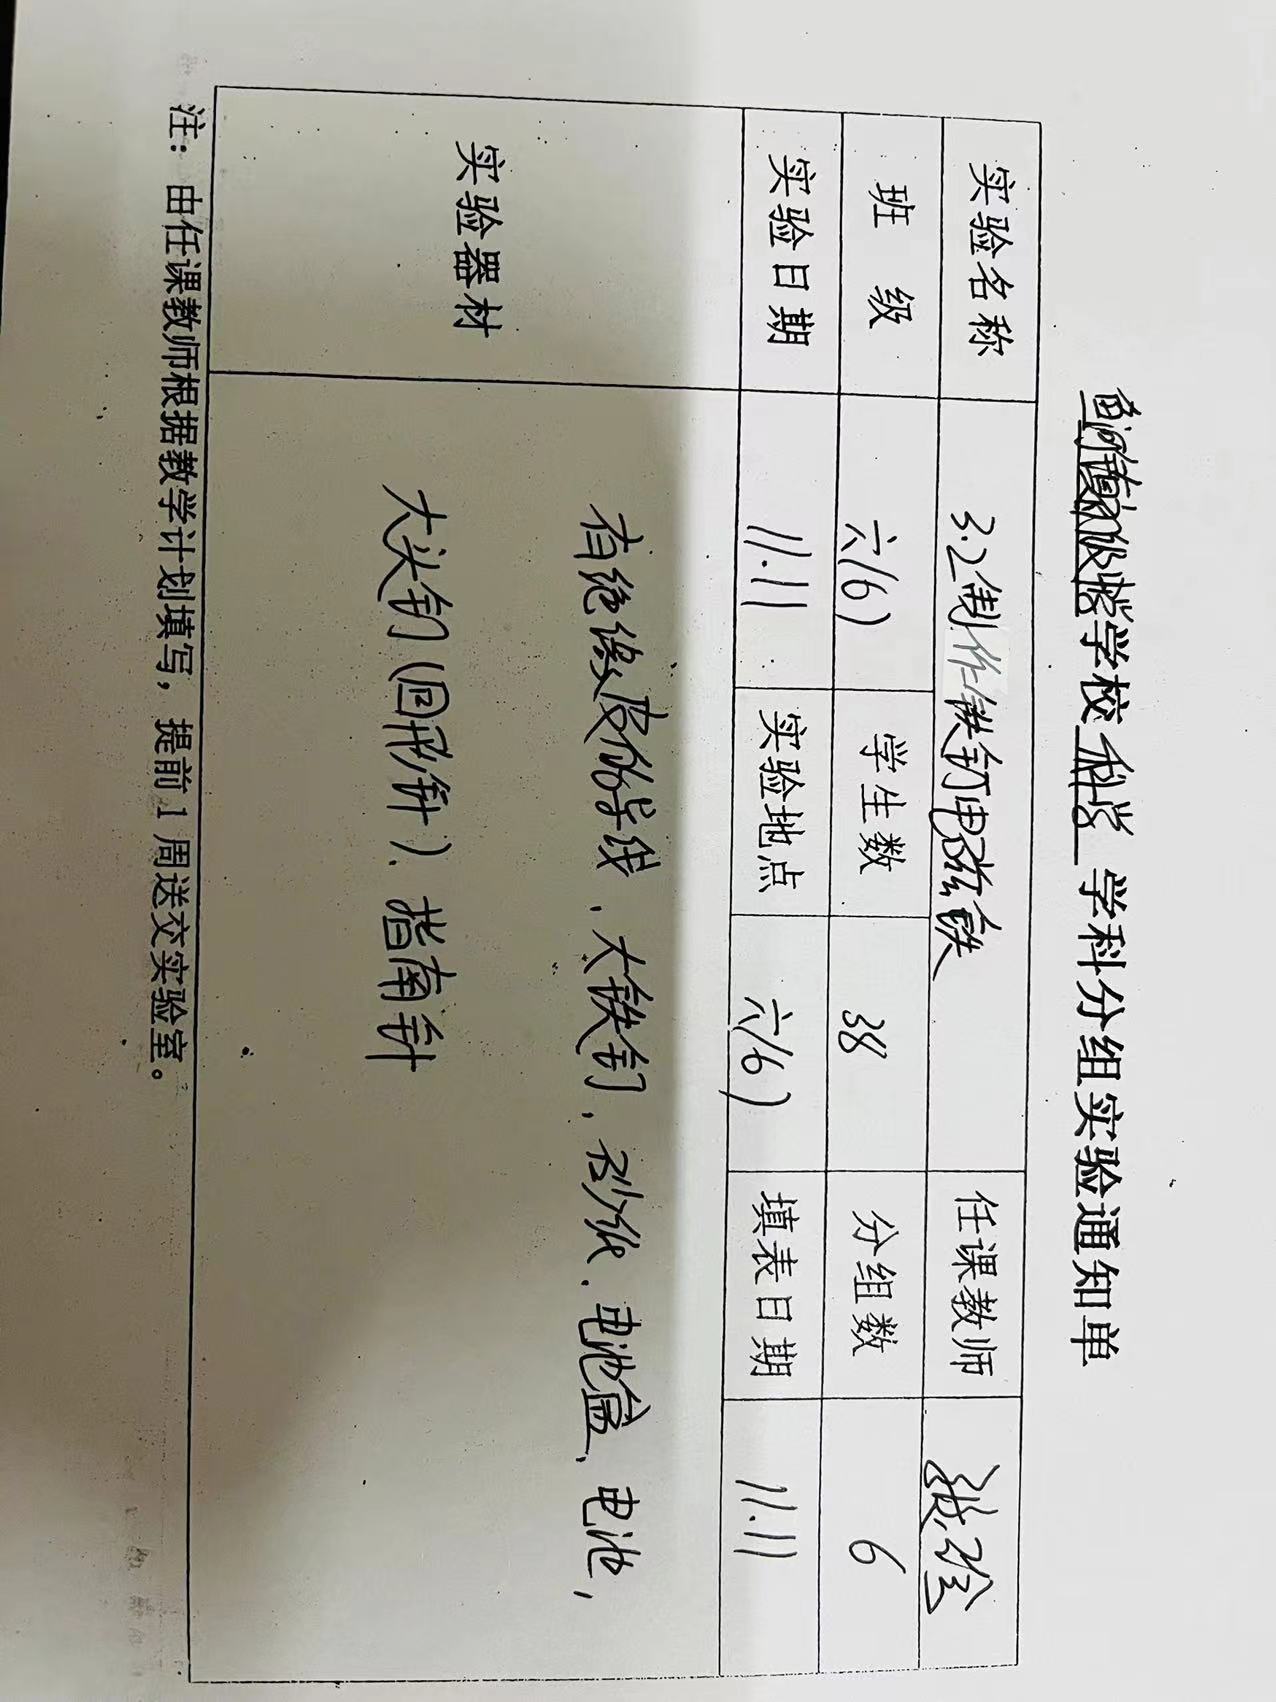 鱼河镇初级学校 科学 学科分组实验通知单
实验名称 3.2制作铁钉电磁铁 任课教师
班 级 六(6) 学生数 38 分组数 6
实验日期 11.11 实验地点 六(6) 填表日期 11.11
实验器材
有绝缘皮的导线、大铁钉、砂纸、电池盒、电池、
大头针(回形针)、指南针
注：由任课教师根据教学计划填写，提前1周送交实验室。